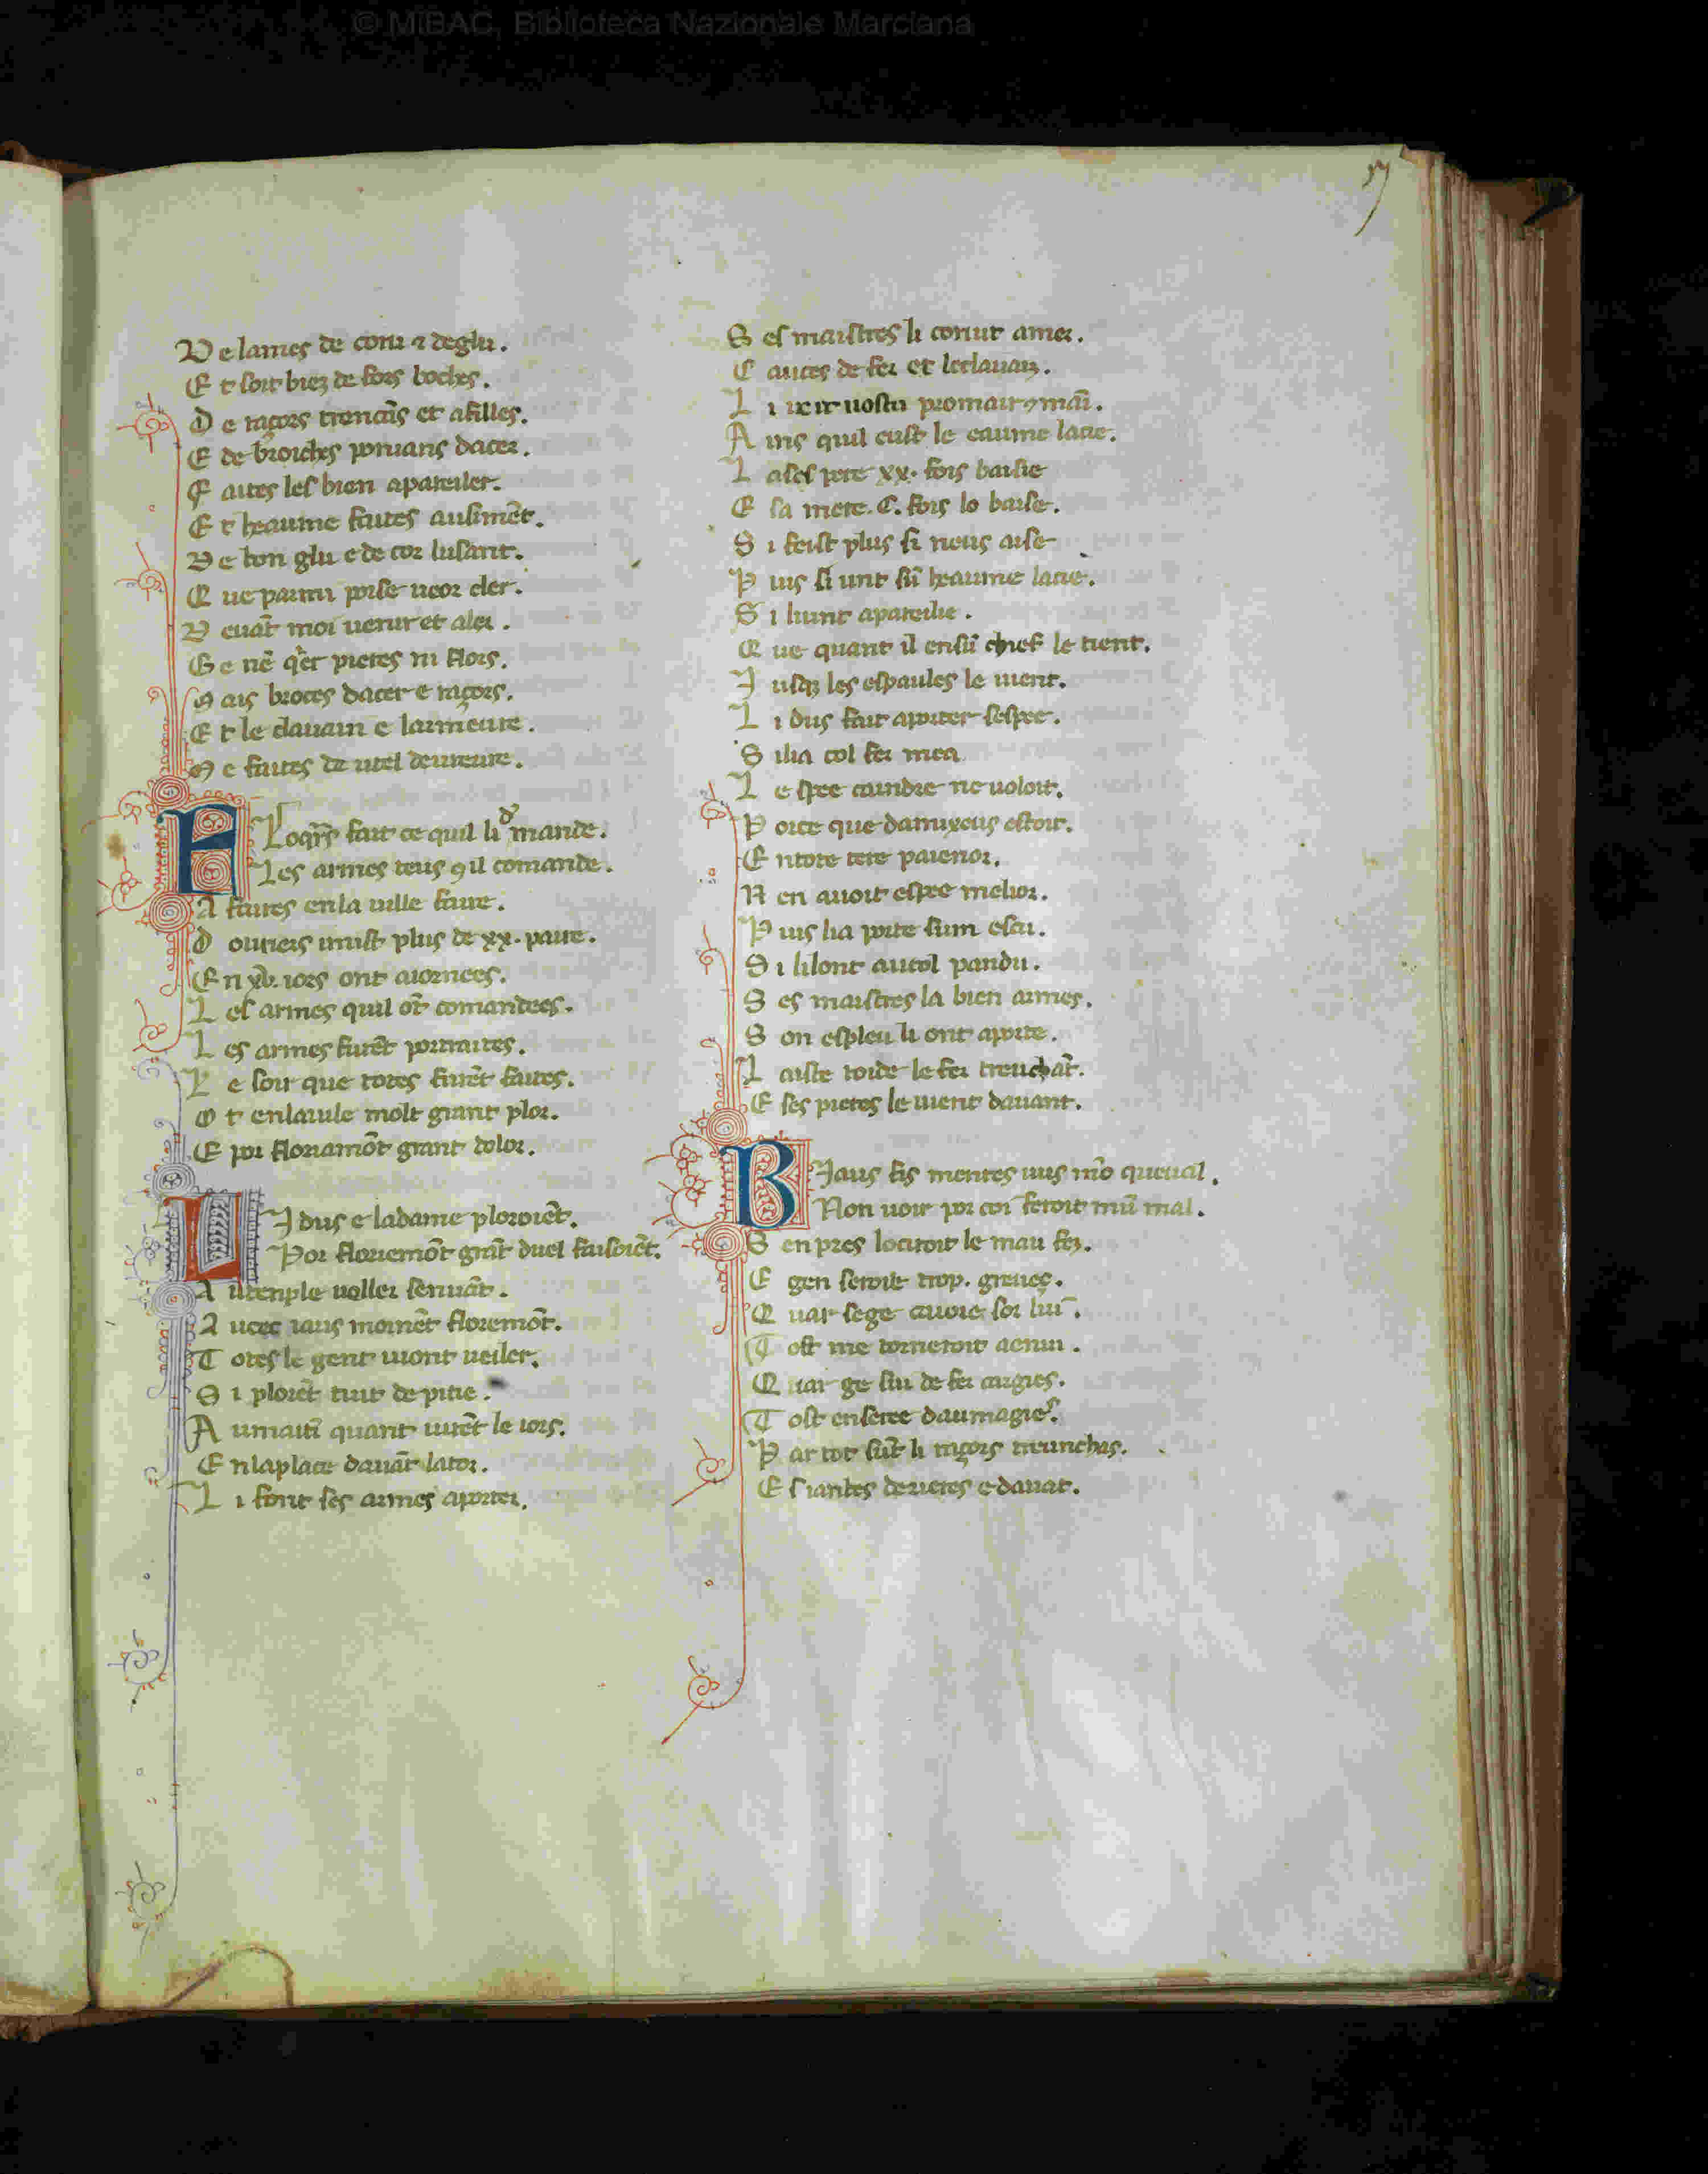 © MiBAC. Biblioteca Nazionale Marciana
17
De lames de coru ⁊ deglu.
E t soit biez de fors boches.
D e raçors trencãs et afilles.
E de broiches poruans dacer.
F aites les bien apareiler.
E t heaume faites ausimẽt.
D e bon glu e de cor lusant.
Q ue parmi poise ueor cler.
D euãt moi uenir et aler.
G e nẽ q̃er pieres ni flors.
M ais broces dacer e raçors.
E t le clauain e larmeure.
M e faites de
A Loq̃rs fait ce quil li demande.
Les armes teus ꝯ il comande.
A faites enla uille faire.
D ouriers mist plus de xx. paire.
E n xv. iors ont aiornees.
L es armes quil õt comandees.
L es armes furẽt portraites.
L e soir que totes furẽt faites.
O t enlauile molt grant plor.
E por floriamõt grant dolor.
L I dus e ladame ploroiẽt.
Por floriemõt grãt duel faisoiẽt.
A utenple uoller
A uoec iaus moinẽt floremõt.
T otes le gent uiont ueiler.
S i plorẽt tuit de pitie.
A umaitĩ quant uirẽt le iors.
E nlaplace dauãt lator.
L i font ses armes aporter.
S es maistres li coriut amer.
C auces de fer et leclauaiz.
L i
A ins quil eust le eaume lacie.
L ases pere xx. fois baisie
E sa mere. C. fois lo baise.
S i feist plus si neus aise
P uis li unt sũ heaume lacie.
S i liunt apareilie.
Q ue quant il ensũ chief le tient.
J usqꝫ les espaules le uient.
L i dus fait aporter sespee.
S ilia col fer mea
L e spee caindre ne uoloit.
P orce que damixeus estoit.
E ntote tere paienor.
N en auoit espee melior.
P uis lia porte sum escu.
S i lilont aucol pandu.
S es maistres la bien armes.
S on espleu li ont aporte.
L aiste roide le fer treuchãt.
E ses pieres le uient dauant.
B Iaus fis mentes uus mõ queual.
Non uoir por coi feroit mũ mal.
S enpres lociroit le mau fez.
E gen seroie trop. greueç.
Q uar sege auoie sor lui.
T ost me torneroit aenui.
Q uar ge sui de fer cargies.
T ost enseree daumagies.
P ar tot sũt li raçors treunchas.
E s iambes derieres e dauãt.